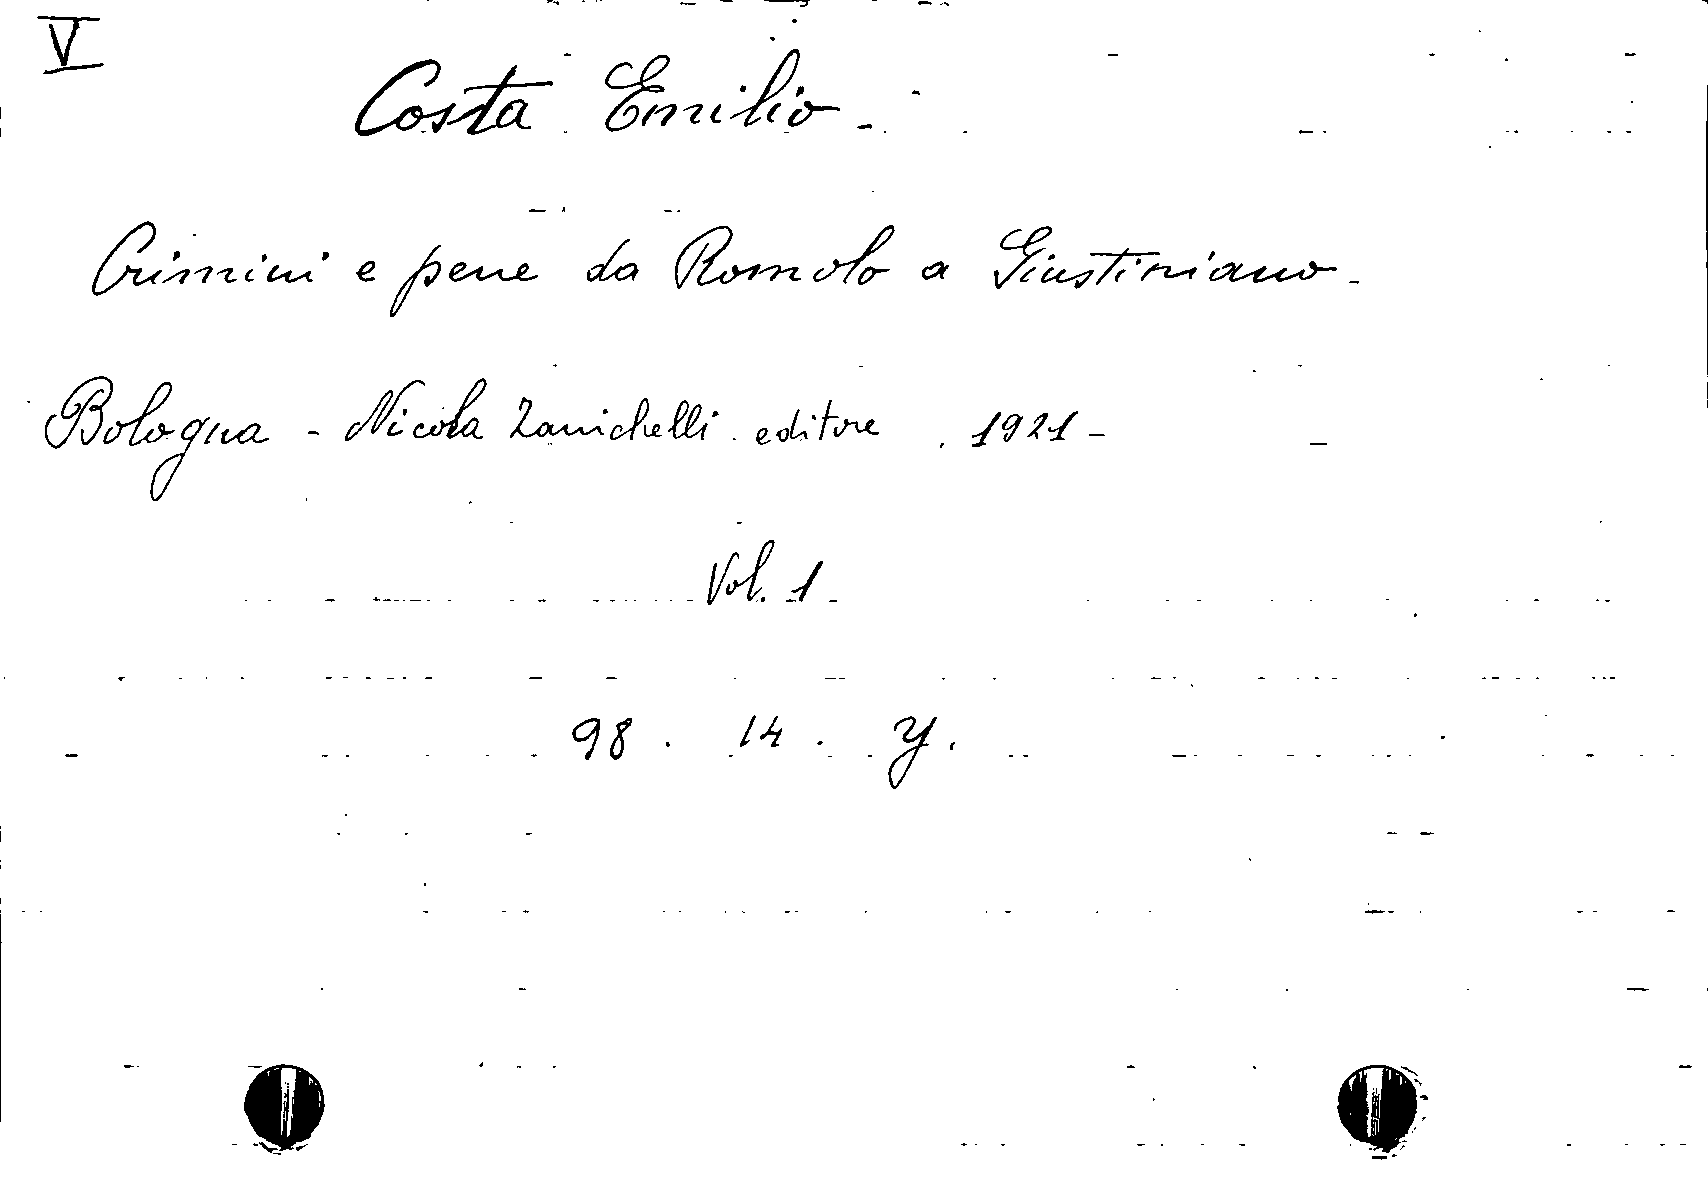 V
Costa Emilio -
Crimini e pene da Romolo a Giustiniano -
Bologna - Nicola Zanichelli editore . 1921 -
Vol. 1
98 . 14 . y .